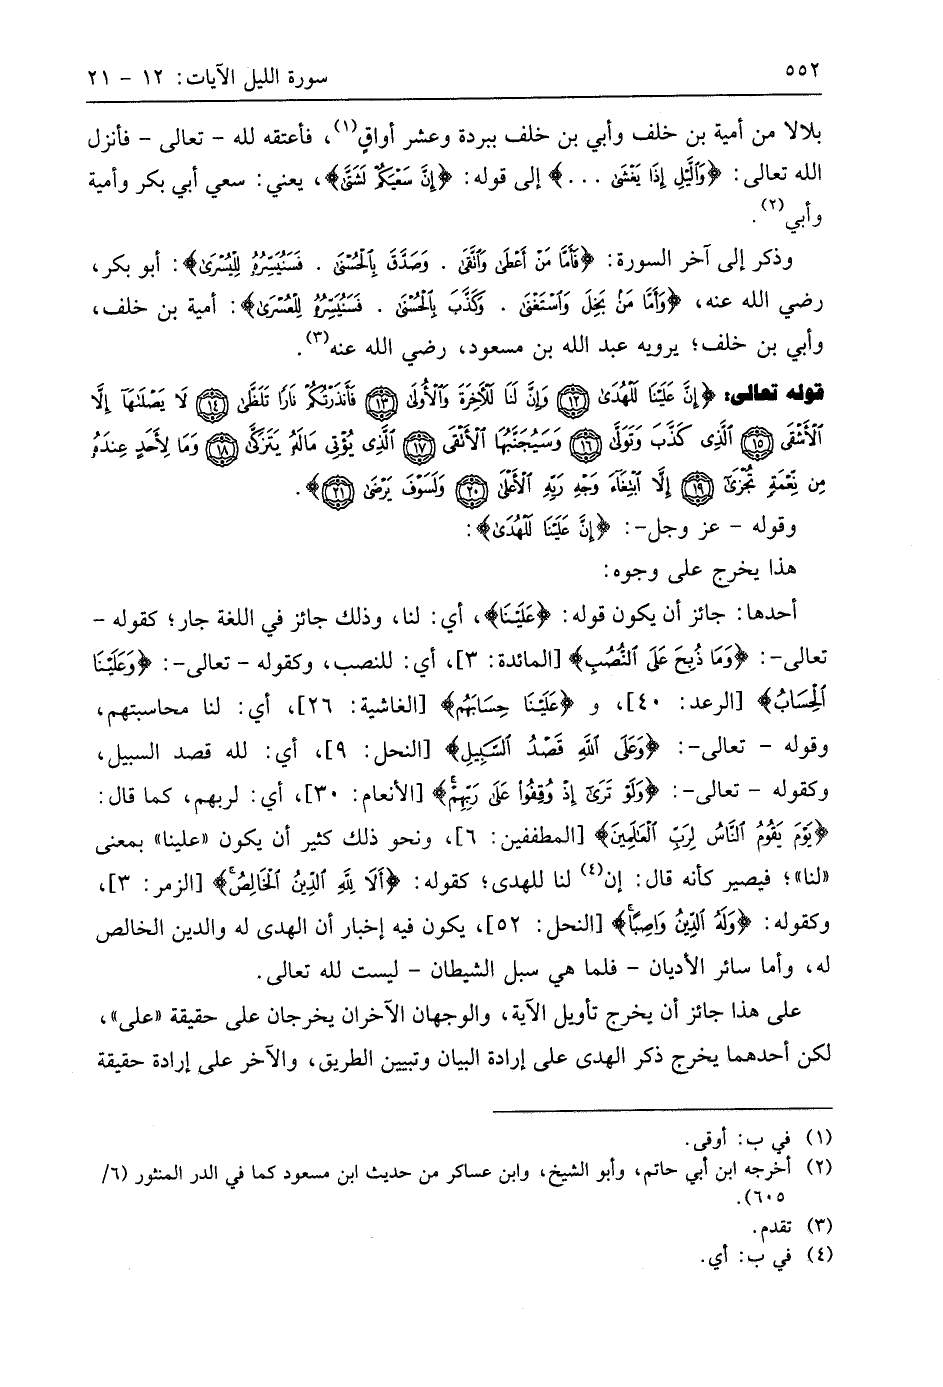 ٥٥٢
سورة الليل الآيات: ١٢ - ٢١
بلالا من أمية بن خلف وأبي بن خلف ببردة وعشر أواقٍ(١)، فأعتقه لله - تعالى - فأنزل
الله تعالى: ﴿وَٱلَّيۡلِ إِذَا يَغۡشَىٰ ...﴾ إلى قوله: ﴿إِنَّ سَعۡيَكُمۡ لَشَتَّىٰ﴾، يعني: سعي أبي بكر وأمية
وأبي(٢).
وذكر إلى آخر السورة: ﴿فَأَمَّا مَنۡ أَعۡطَىٰ وَٱتَّقَىٰ . وَصَدَّقَ بِٱلۡحُسۡنَىٰ . فَسَنُيَسِّرُهُۥ لِلۡيُسۡرَىٰ﴾: أبو بكر،
رضي الله عنه، ﴿وَأَمَّا مَنۢ بَخِلَ وَٱسۡتَغۡنَىٰ . وَكَذَّبَ بِٱلۡحُسۡنَىٰ . فَسَنُيَسِّرُهُۥ لِلۡعُسۡرَىٰ﴾: أمية بن خلف،
وأبي بن خلف؛ يرويه عبد الله بن مسعود، رضي الله عنه(٣).
قوله تعالى: ﴿إِنَّ عَلَيۡنَا لَلۡهُدَىٰ ١٢ وَإِنَّ لَنَا لَلۡأٓخِرَةَ وَٱلۡأُولَىٰ ١٣ فَأَنذَرۡتُكُمۡ نَارٗا تَلَظَّىٰ ١٤ لَا يَصۡلَىٰهَآ إِلَّا
ٱلۡأَشۡقَى ١٥ ٱلَّذِي كَذَّبَ وَتَوَلَّىٰ ١٦ وَسَيُجَنَّبُهَا ٱلۡأَتۡقَى ١٧ ٱلَّذِي يُؤۡتِي مَالَهُۥ يَتَزَكَّىٰ ١٨ وَمَا لِأَحَدٍ عِندَهُۥ
مِن نِّعۡمَةٖ تُجۡزَىٰٓ ١٩ إِلَّا ٱبۡتِغَآءَ وَجۡهِ رَبِّهِ ٱلۡأَعۡلَىٰ ٢٠ وَلَسَوۡفَ يَرۡضَىٰ ٢١﴾.
وقوله - عز وجل-: ﴿إِنَّ عَلَيۡنَا لَلۡهُدَىٰ﴾:
هذا يخرج على وجوه:
أحدها: جائز أن يكون قوله: ﴿عَلَيۡنَا﴾، أي: لنا، وذلك جائز في اللغة جار؛ كقوله -
تعالى-: ﴿وَمَا ذُبِحَ عَلَى ٱلنُّصُبِ﴾ [المائدة: ٣]، أي: للنصب، وكقوله - تعالى-: ﴿وَعَلَيۡنَا
ٱلۡحِسَابُ﴾ [الرعد: ٤٠]، و ﴿عَلَيۡنَا حِسَابَهُم﴾ [الغاشية: ٢٦]، أي: لنا محاسبتهم،
وقوله - تعالى-: ﴿وَعَلَى ٱللَّهِ قَصۡدُ ٱلسَّبِيلِ﴾ [النحل: ٩]، أي: لله قصد السبيل،
وكقوله - تعالى-: ﴿وَلَوۡ تَرَىٰٓ إِذۡ وُقِفُواْ عَلَىٰ رَبِّهِمۡۚ﴾ [الأنعام: ٣٠]، أي: لربهم، كما قال:
﴿يَوۡمَ يَقُومُ ٱلنَّاسُ لِرَبِّ ٱلۡعَٰلَمِينَ﴾ [المطففين: ٦]، ونحو ذلك كثير أن يكون «علينا» بمعنى
«لنا»؛ فيصير كأنه قال: إن(٤) لنا للهدى؛ كقوله: ﴿أَلَا لِلَّهِ ٱلدِّينُ ٱلۡخَالِصُۚ﴾ [الزمر: ٣]،
وكقوله: ﴿وَلَهُ ٱلدِّينُ وَاصِبًاۚ﴾ [النحل: ٥٢]، يكون فيه إخبار أن الهدى له والدين الخالص
له، وأما سائر الأديان - فلما هي سبل الشيطان - ليست لله تعالى.
على هذا جائز أن يخرج تأويل الآية، والوجهان الآخران يخرجان على حقيقة «على»،
لكن أحدهما يخرج ذكر الهدى على إرادة البيان وتبيين الطريق، والآخر على إرادة حقيقة
(١) في ب: أوقى.
(٢) أخرجه ابن أبي حاتم، وأبو الشيخ، وابن عساكر من حديث ابن مسعود كما في الدر المنثور (٦/
٦٠٥).
(٣) تقدم.
(٤) في ب: أي.